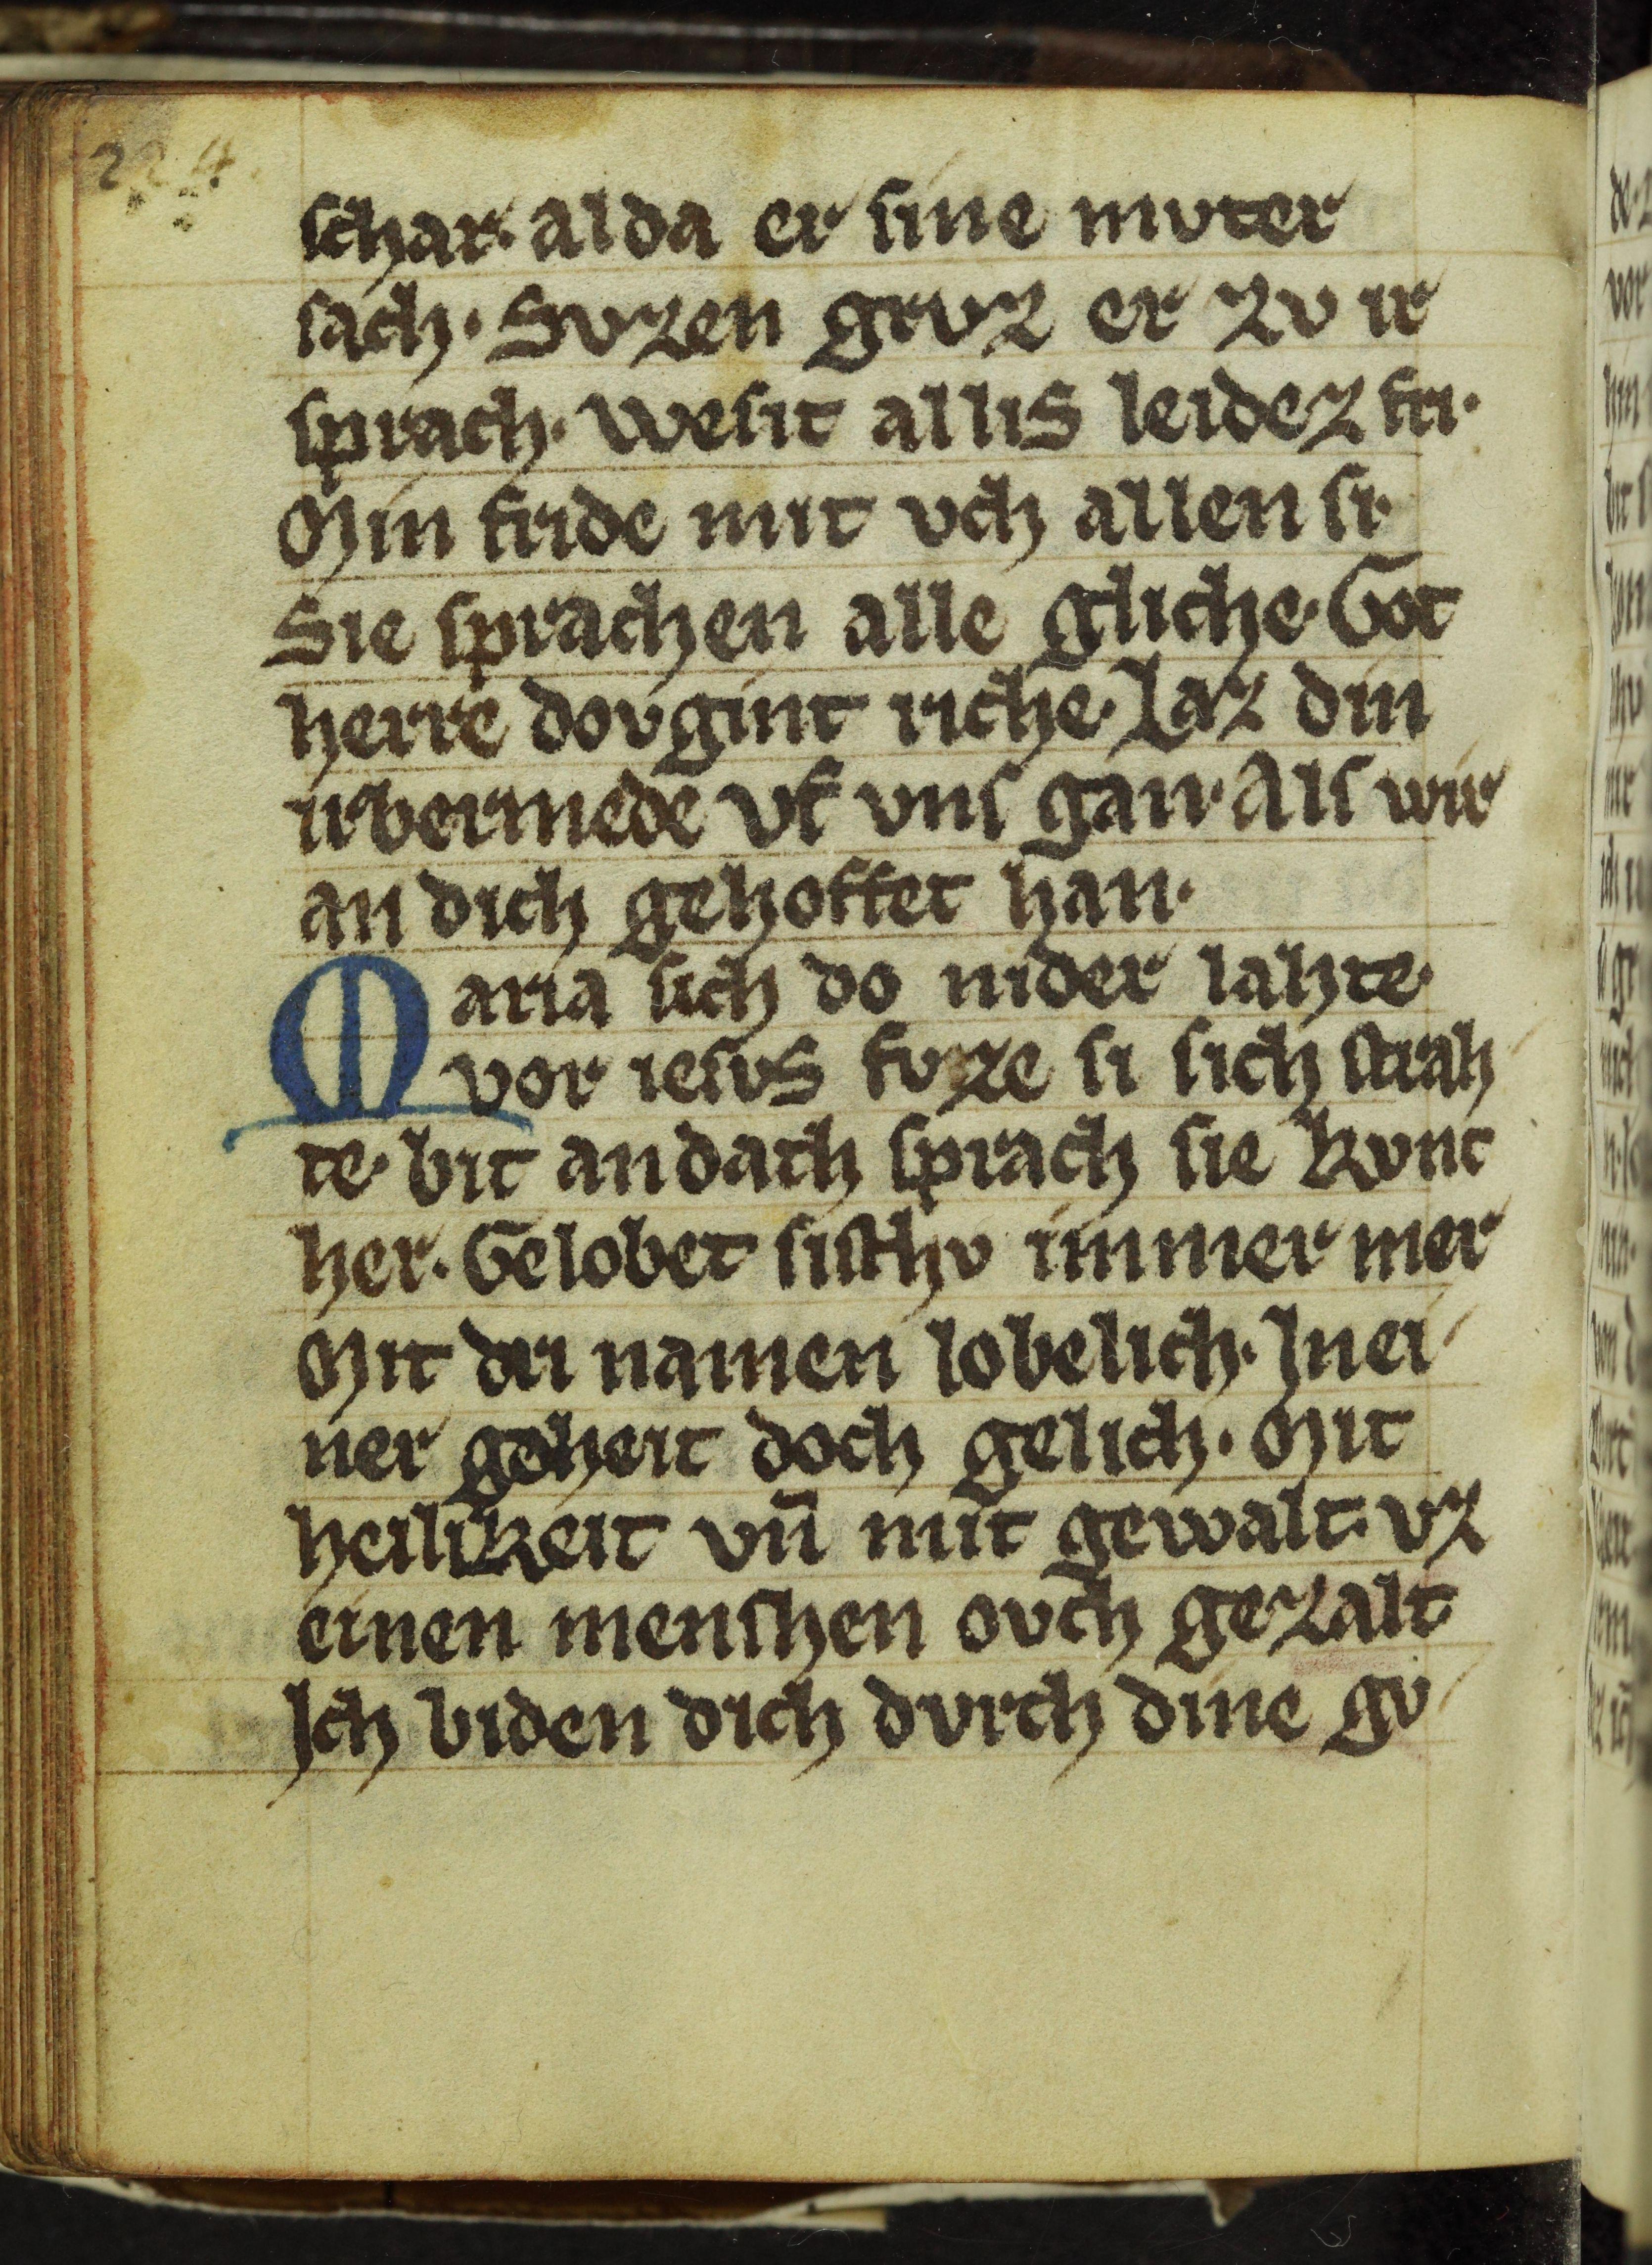 224.
schar. alda er sine mvter
sach. Svzen grvz er zv ir
sprach. Wesit allis leidez fri.
Min fride mit vch allen si.
Sie sprachen alle gliche. Got
herre dovgint riche. Laz din
irbermede vf vns gan. Als wir
an dich gehoffet han.
Maria sich do nider lahte.
vor iesvs fvze si sich strah
te. bit andach sprach sie kvnc
her. Gelobet sisthv immer mer
Mit dri namen lobelich. Jn ei
ner goheit doch gelich. Mit
heilikeit vn̄ mit gewalt. vz
einen menshen ovch gezalt
Jch biden dich dvrch dine gv